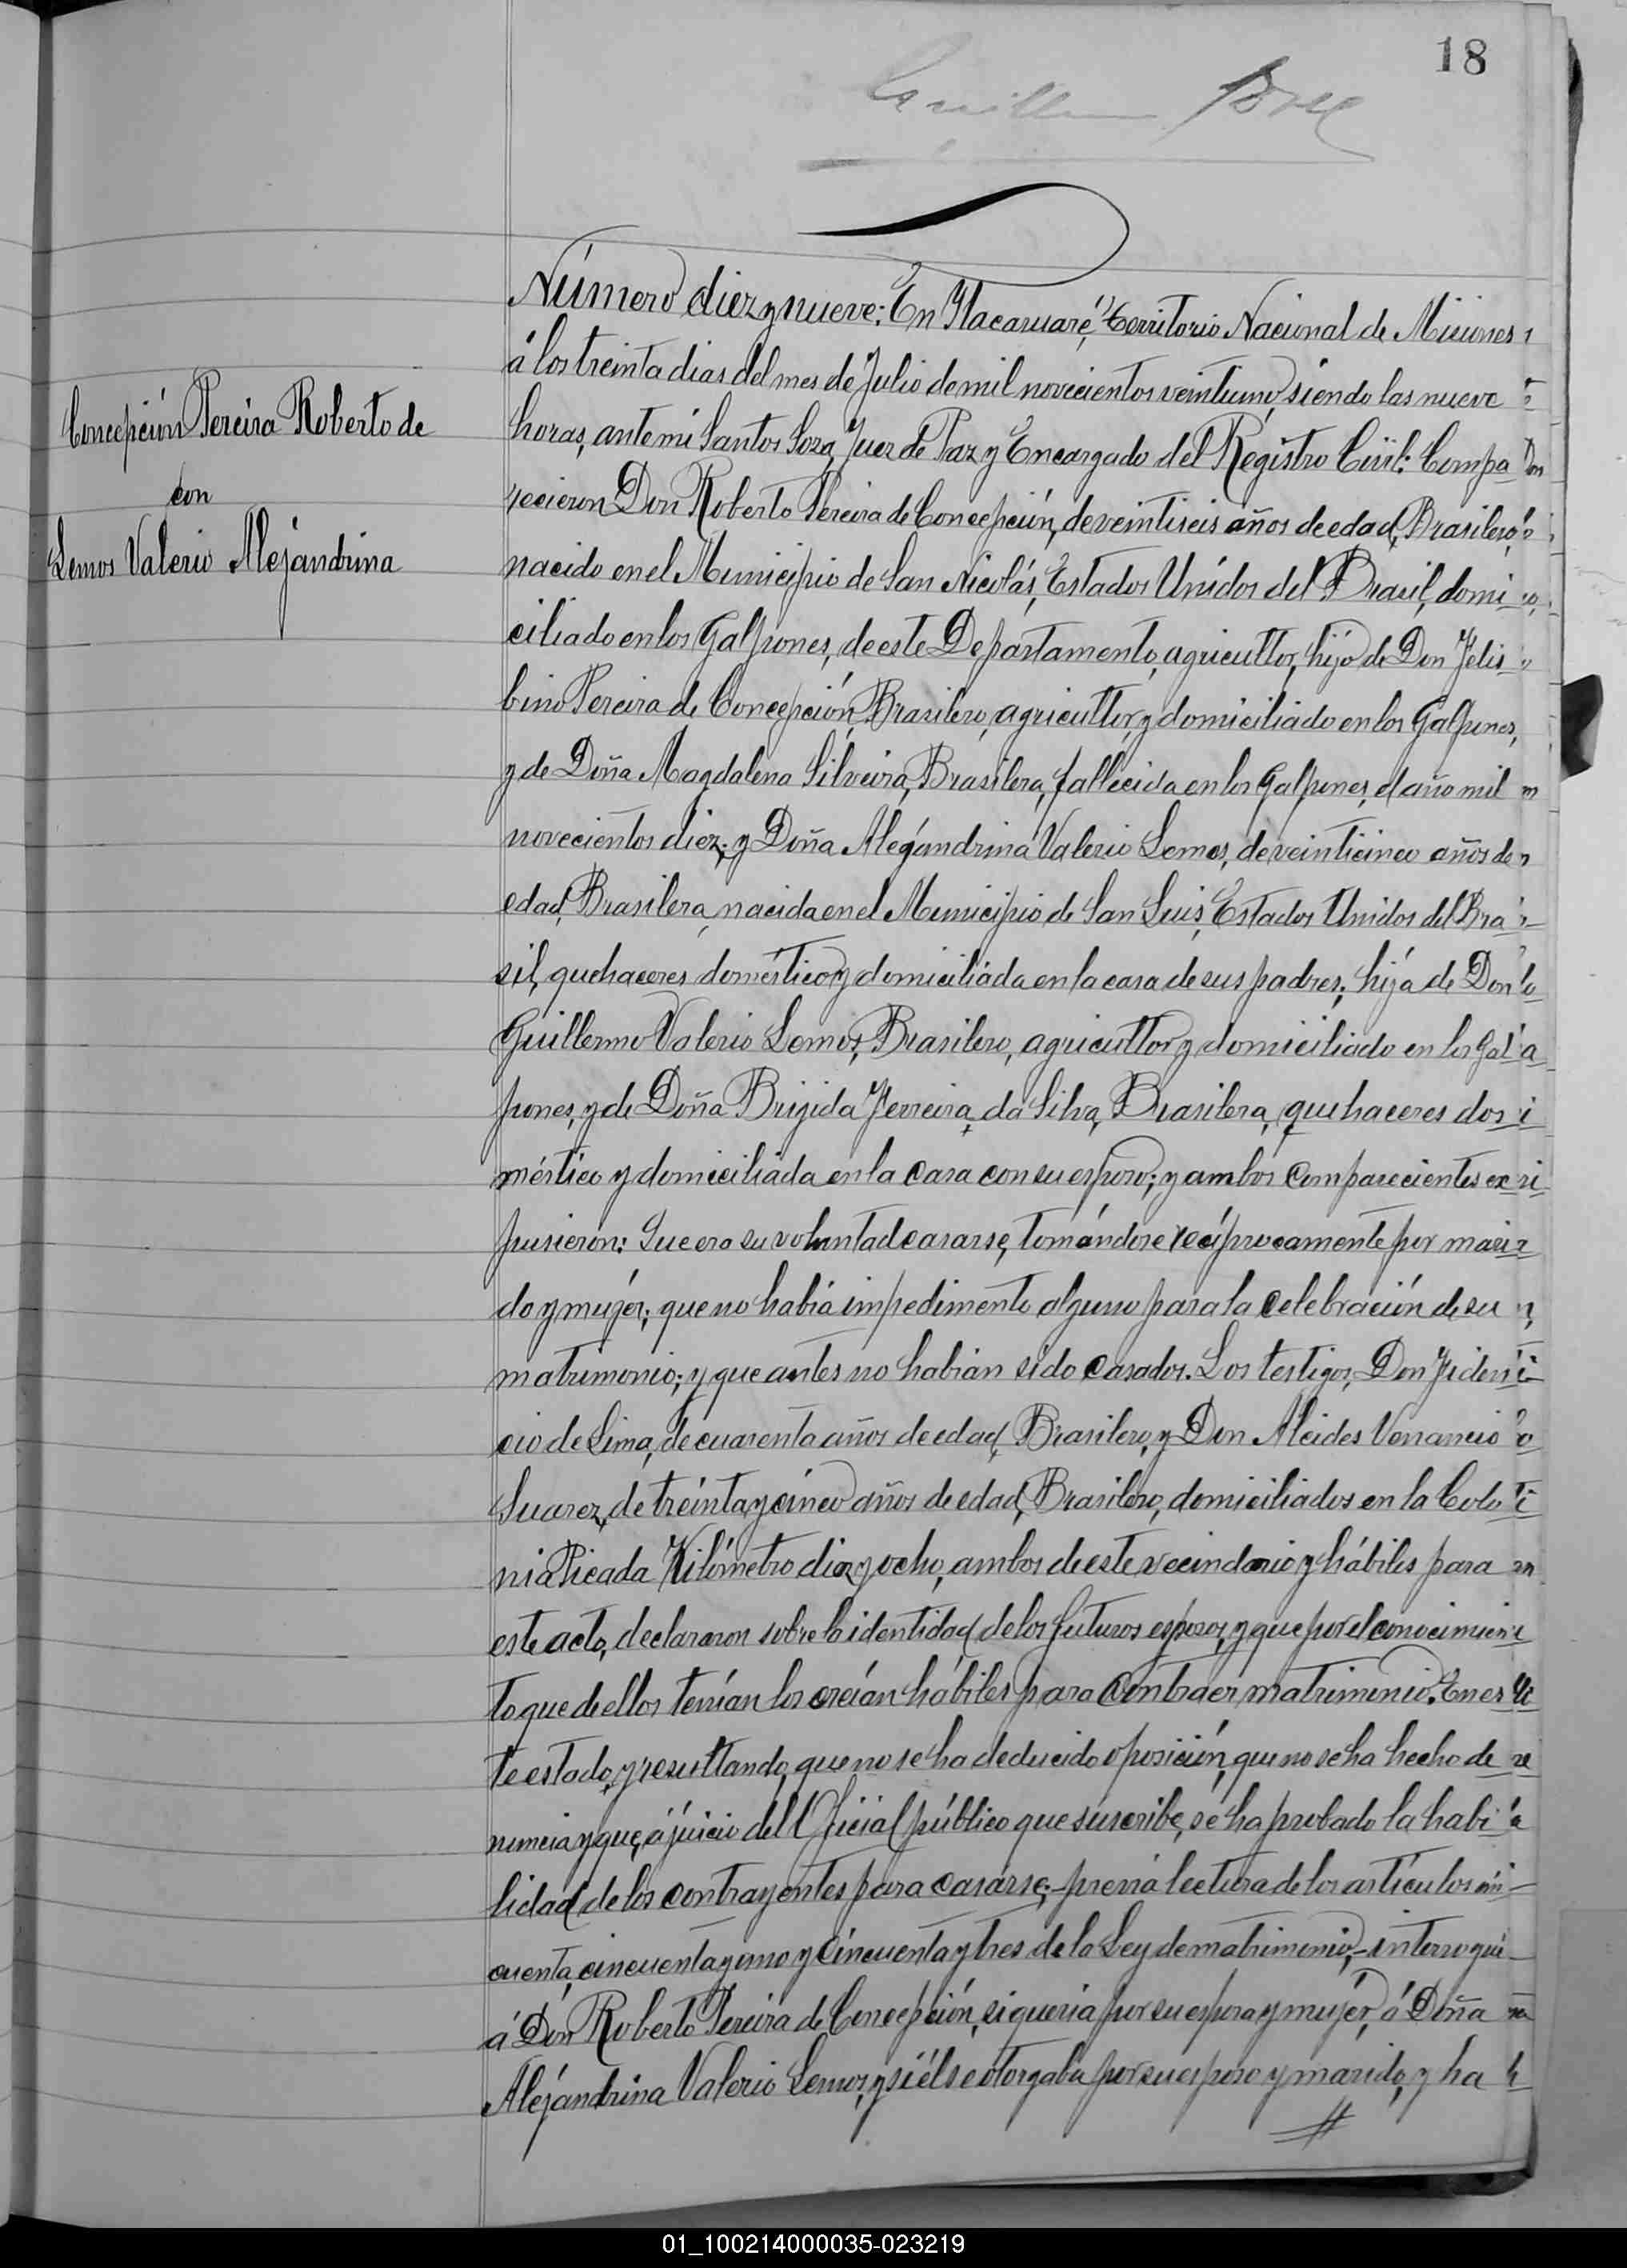 18
Guillermo
Número diez y nueve: En Itacaruaré, Territorio Nacional de Misiones,
á los treinta dias del mes de Julio de mil novecientos veintiuno, siendo las nueve
horas, ante mi Santos Sosa, Juez de Paz y Encargado del Registro Civil: Compa
recieron Don Roberto Pereira de Concepción, de veintiseis años de edad, Brasilero,
nacido en el Municipio de San Nicolás, Estados Unidos del Brasil, domi
ciliado en los Galpones, de este Departamento, agricultor, hijo de Don Felis
bino Pereira de Concepción, Brasilero, agricultor, y domiciliado en los Galpones,
y de Doña Magdalena Silveira, Brasilera, fallecida en los Galpones, el año mil
novecientos diez; y Doña Alejandrina Valerio Lemos, de veinticinco años de
edad, Brasilera, nacida en el Municipio de San Luis, Estados Unidos del Bra
sil, quehaceres doméstico y domiciliada en la casa de sus padres; hija de Don
Guillermo Valerio Lemos, Brasilero, agricultor y domiciliado en los Gal
pones, y de Doña Brigida Ferreira da Silva, Brasilera, quehaceres do
méstico y domiciliada en la casa con su esposo; y ambos comparecientes ex
pusieron: Que era su voluntad casarse, tomándose recíprocamente por mari
do y mujér; que no había impedimento alguno para la celebración de su
matrimonio; y que antes no habían sido casados. Los testigos, Don Fiden
cio de Lima, de cuarenta años de edad, Brasilero, y Don Alcides Venancio
Suarez, de treinta y cinco años de edad, Brasilero, domiciliados en la Colo
nia Picada Kilómetro diez y ocho, ambos de este vecindario y hábiles para
este acto, declararon sobre la identidad de los futuros esposos, y que por el conocimien
to que de ellos tenían los creían hábiles para contraer matrimonio. En es
te estado, y resultando, que no se ha deducido oposición, que no se ha hecho de
nuncia y que, á juicio del Oficial público que suscribe, sé ha probado la habi
lidad de los contrayentes para casarse;- previa lectura de los artículos cin
cuenta, cincuenta y uno y cincuenta y tres de la Ley de matrimonio,- interrogué
á Don Roberto Pereira de Concepción, si queria por su esposa y mujér, á Doña
Alejandrina Valerio Lemos, y si él se otorgaba por su esposo y marido, y ha
Concepción Pereira Roberto de
con
Lemos Valerio Alejandrina
01_100214000035-023219